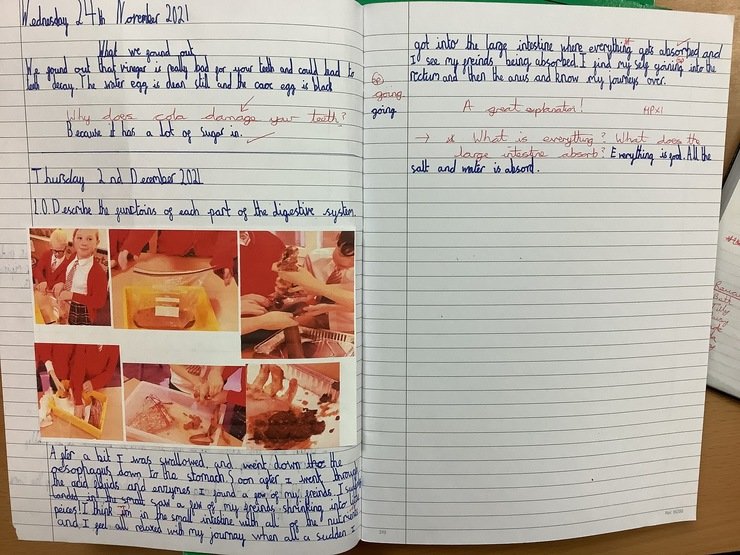 Wednesday 24th November 2021
What we gound out
We gound out that vinegar is really bad for your teeth and could lead to
teeth decay. The water egg is dean still and the egg is black
Why does cola damage your teeth?
Because it has a lot og sugar in.
Thursday 2nd December 2021
L.O. Describe the gunctoins og each part og the digestive system.
Agter a bit I was swallowed, and went down the
oesophagus down to the stomach. Soon agter I went through
the acid gluids and enzymes I gound a gew og my greinds. I
landed in the small saw a gew og my greinds shrinking into
peices! I think I'm in the small intestine with all og the nutrients
and I geel all relaxed with my journey when all a sudden I
got into the large intestine where everything gets absorbed and
I see my greinds being absorbed. I gind my selg goining into the
rectum and then the anus and know my journeys over.
sp
going
going
A great explanation! HPX1
→ What is everything? What does the
large intestine absorb? Everything is good. All the
salt and water is absord.